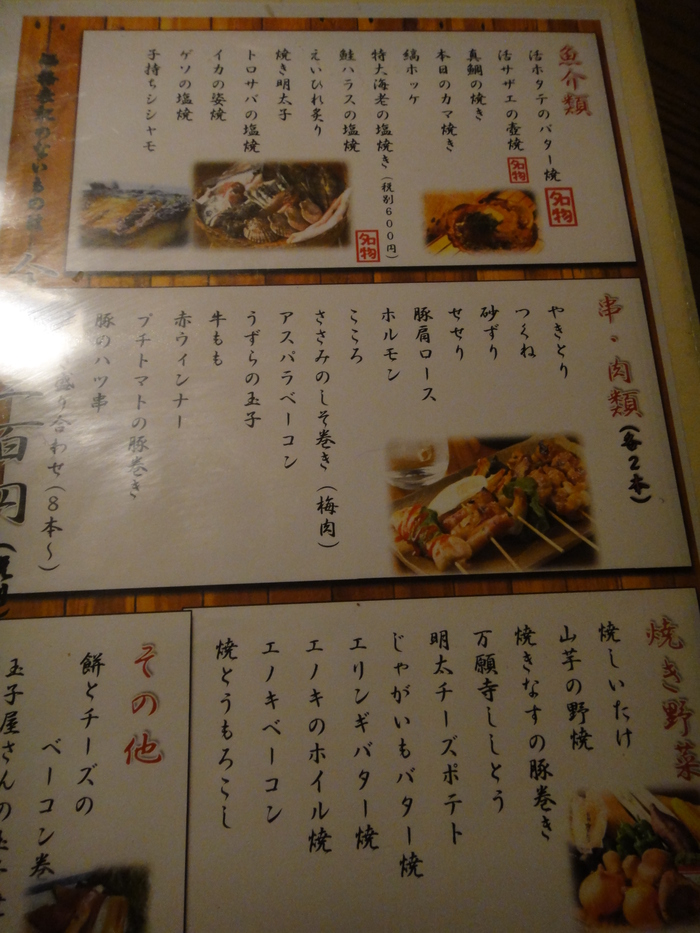 魚介類
活ホタテのバター焼 名物
活サザエの壺焼 名物
真鯛の焼き
本日のカマ焼き
縞ホッケ
特大海老の塩焼き(税別600円) 名物
鮭ハラスの塩焼
えいひれ炙り
焼き明太子
トロサバの塩焼
イカの姿焼
ゲソの塩焼
子持ちシシャモ
串・肉類(各2本)
やきとり
つくね
砂ずり
せせり
豚肩ロース
ホルモン
こころ
ささみのしそ巻き(梅肉)
アスパラベーコン
うずらの玉子
牛もも
赤ウィンナー
プチトマトの豚巻き
豚のハツ串
盛り合わせ(8本〜)
焼き野菜
焼しいたけ
山芋の野焼
焼きなすの豚巻き
万願寺ししとう
明太チーズポテト
じゃがいもバター焼
エリンギバター焼
エノキのホイル焼
エノキベーコン
焼とうもろこし
その他
餅とチーズの
ベーコン巻
玉子屋さんの玉子
のないもの
百円